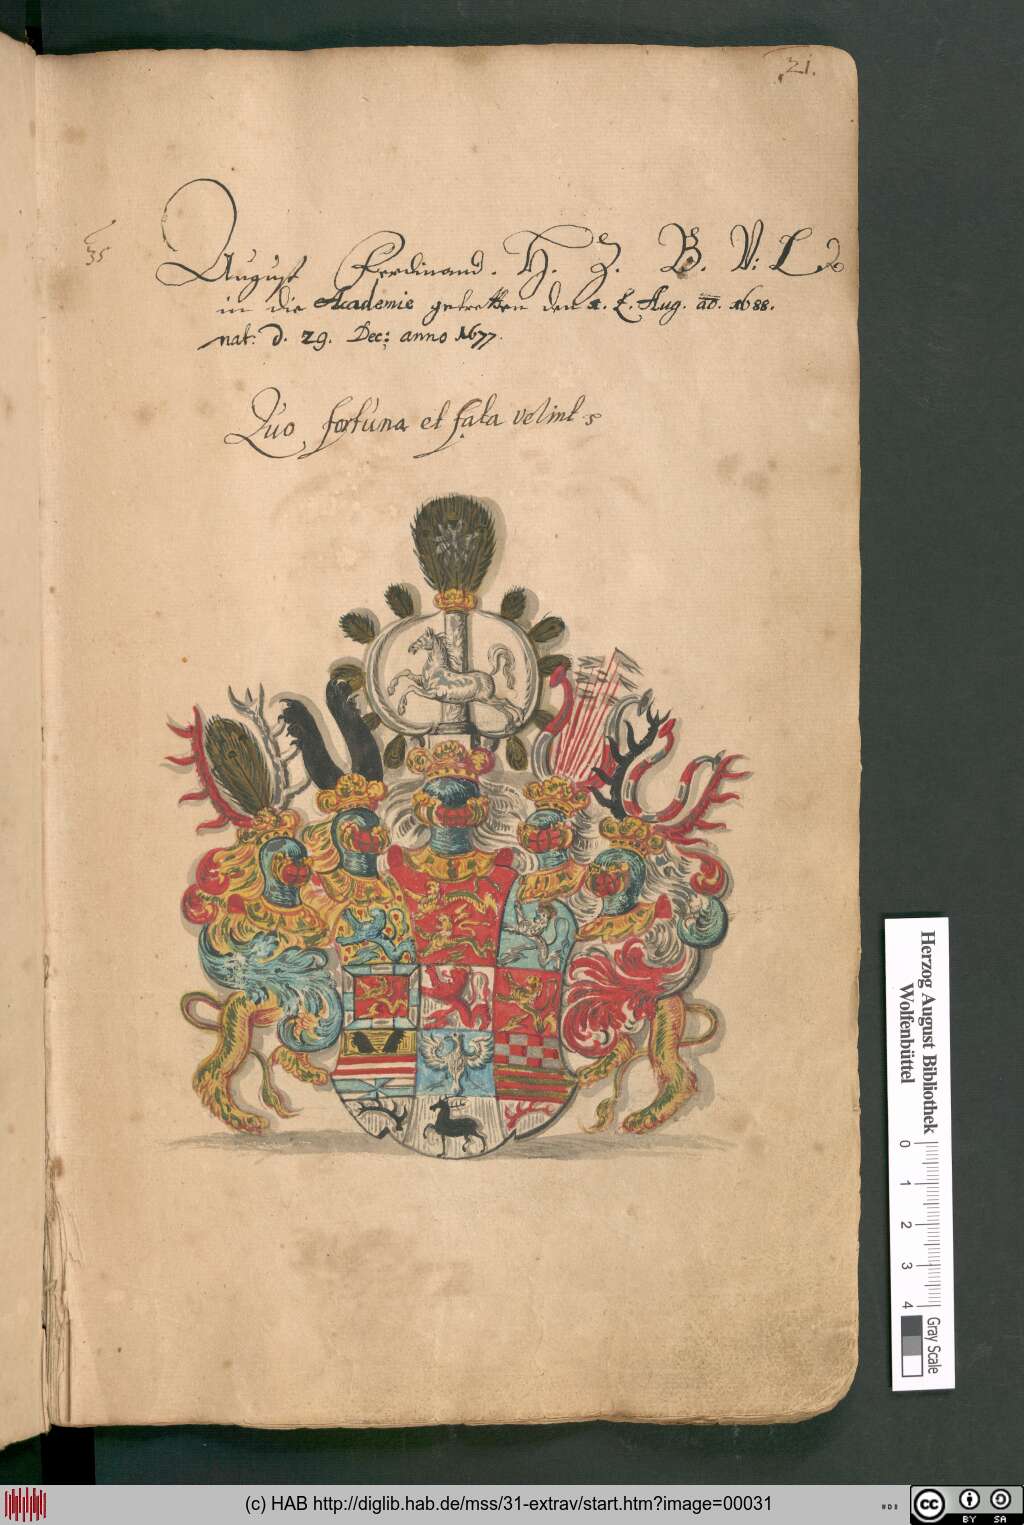 21.
35
August Ferdinand. H. Z. B. V: L
in die Academie getretten den 1. Aug. ao. 1688.
nat: d. 29. Dec: anno 1677.
Quo fortuna et fata velint
Herzog August Bibliothek
Wolfenbüttel
0 1 2 3 4
Gray Scale
(c) HAB http://diglib.hab.de/mss/31-extrav/start.htm?image=00031
cc BY SA